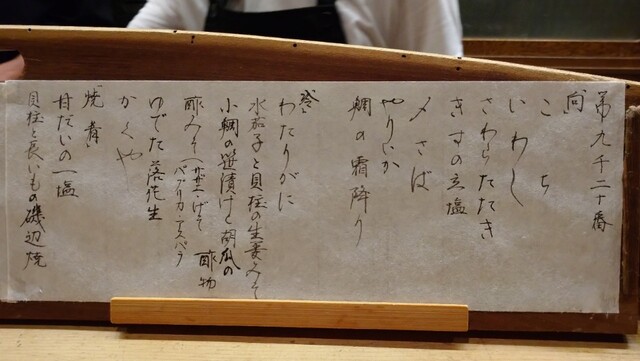 第九千二十番
向
こち
いわし
さわらたたき
きすの立塩
〆さば
やりいか
鯛の霜降り
冷
わたりがに
水茄子と貝柱の生姜みそ
小鯛の笹漬けと胡瓜の
酢物
酢みそ(
パプリカ、アスパラ
ゆでた落花生
かくや
焼肴
甘だいの一塩
貝柱と長いもの磯辺焼